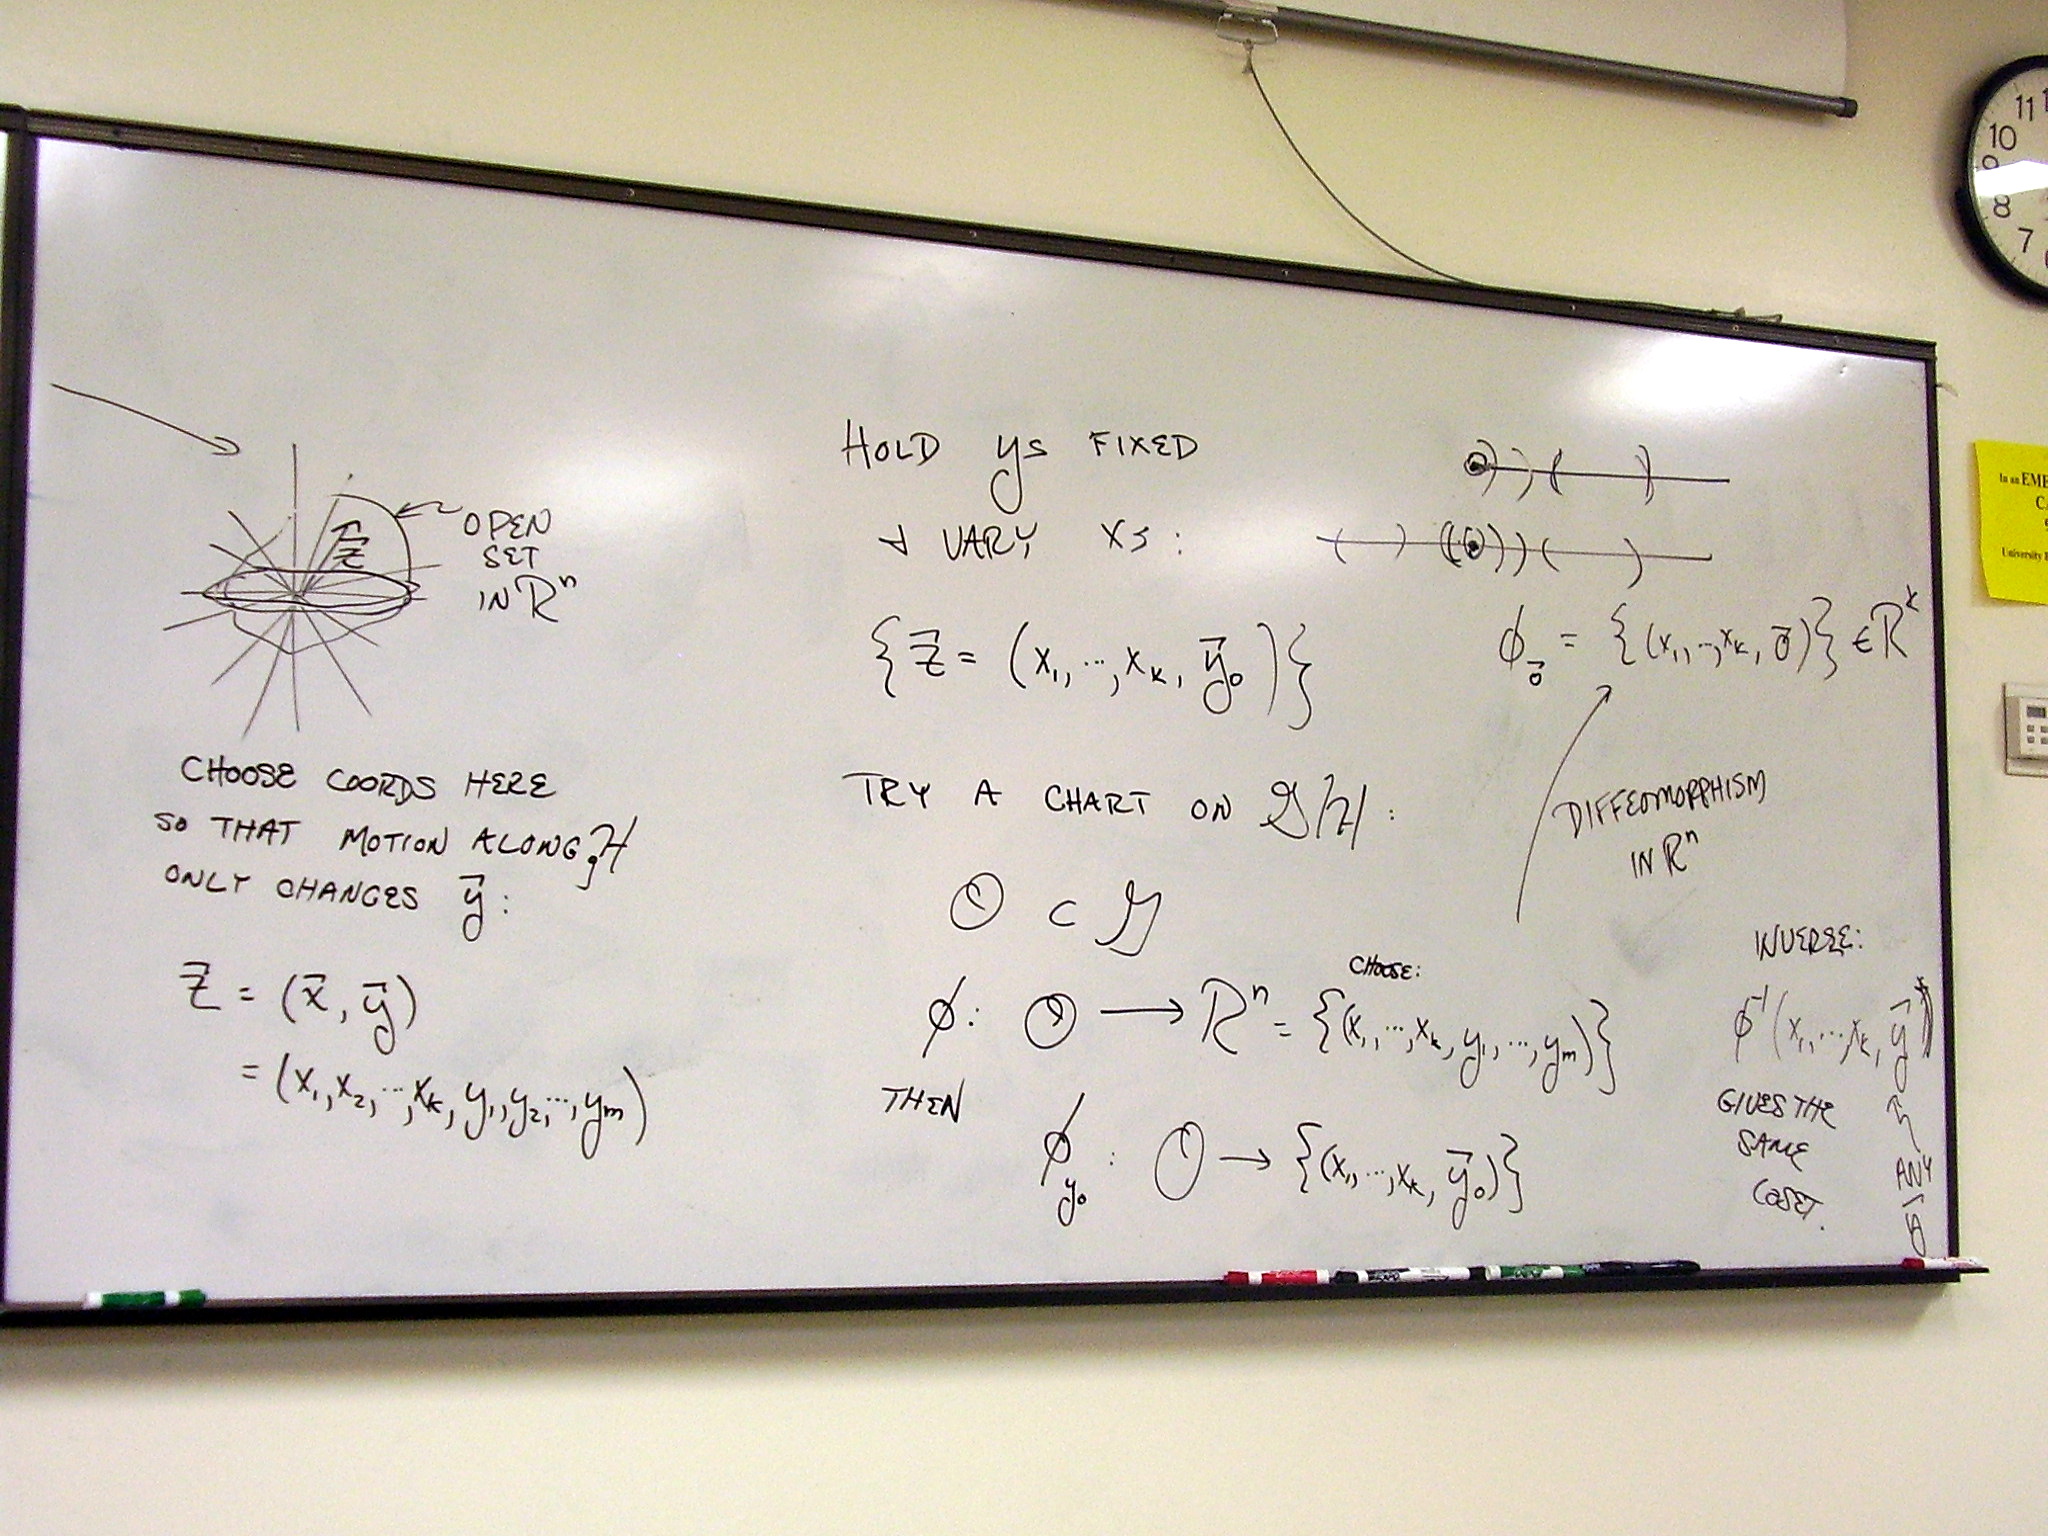 OPEN
SET
IN ℝⁿ
z⃗
CHOOSE COORDS HERE
SO THAT MOTION ALONG H
ONLY CHANGES y⃗ :
z⃗ = (x⃗, y⃗)
= (x₁, x₂, ..., xₖ, y₁, y₂, ..., yₘ)
HOLD ys FIXED
& VARY xs :
{ z⃗ = (x₁, ..., xₖ, y⃗₀) }
TRY A CHART ON G/H :
O ⊂ G
CHOOSE:
φ: O → ℝⁿ = {(x₁, ..., xₖ, y₁, ..., yₘ)}
THEN
φ_y₀ : O → {(x₁, ..., xₖ, y⃗₀)}
φ_0⃗ = {(x₁, .., xₖ, 0⃗)} ∈ ℝᵏ
DIFFEOMORPHISM
IN ℝⁿ
INVERSE:
φ⁻¹(x₁, ..., xₖ, y⃗*)
GIVES THE
SAME
COSET.
ANY
y⃗
11
10
9
8
7
In an EME
University